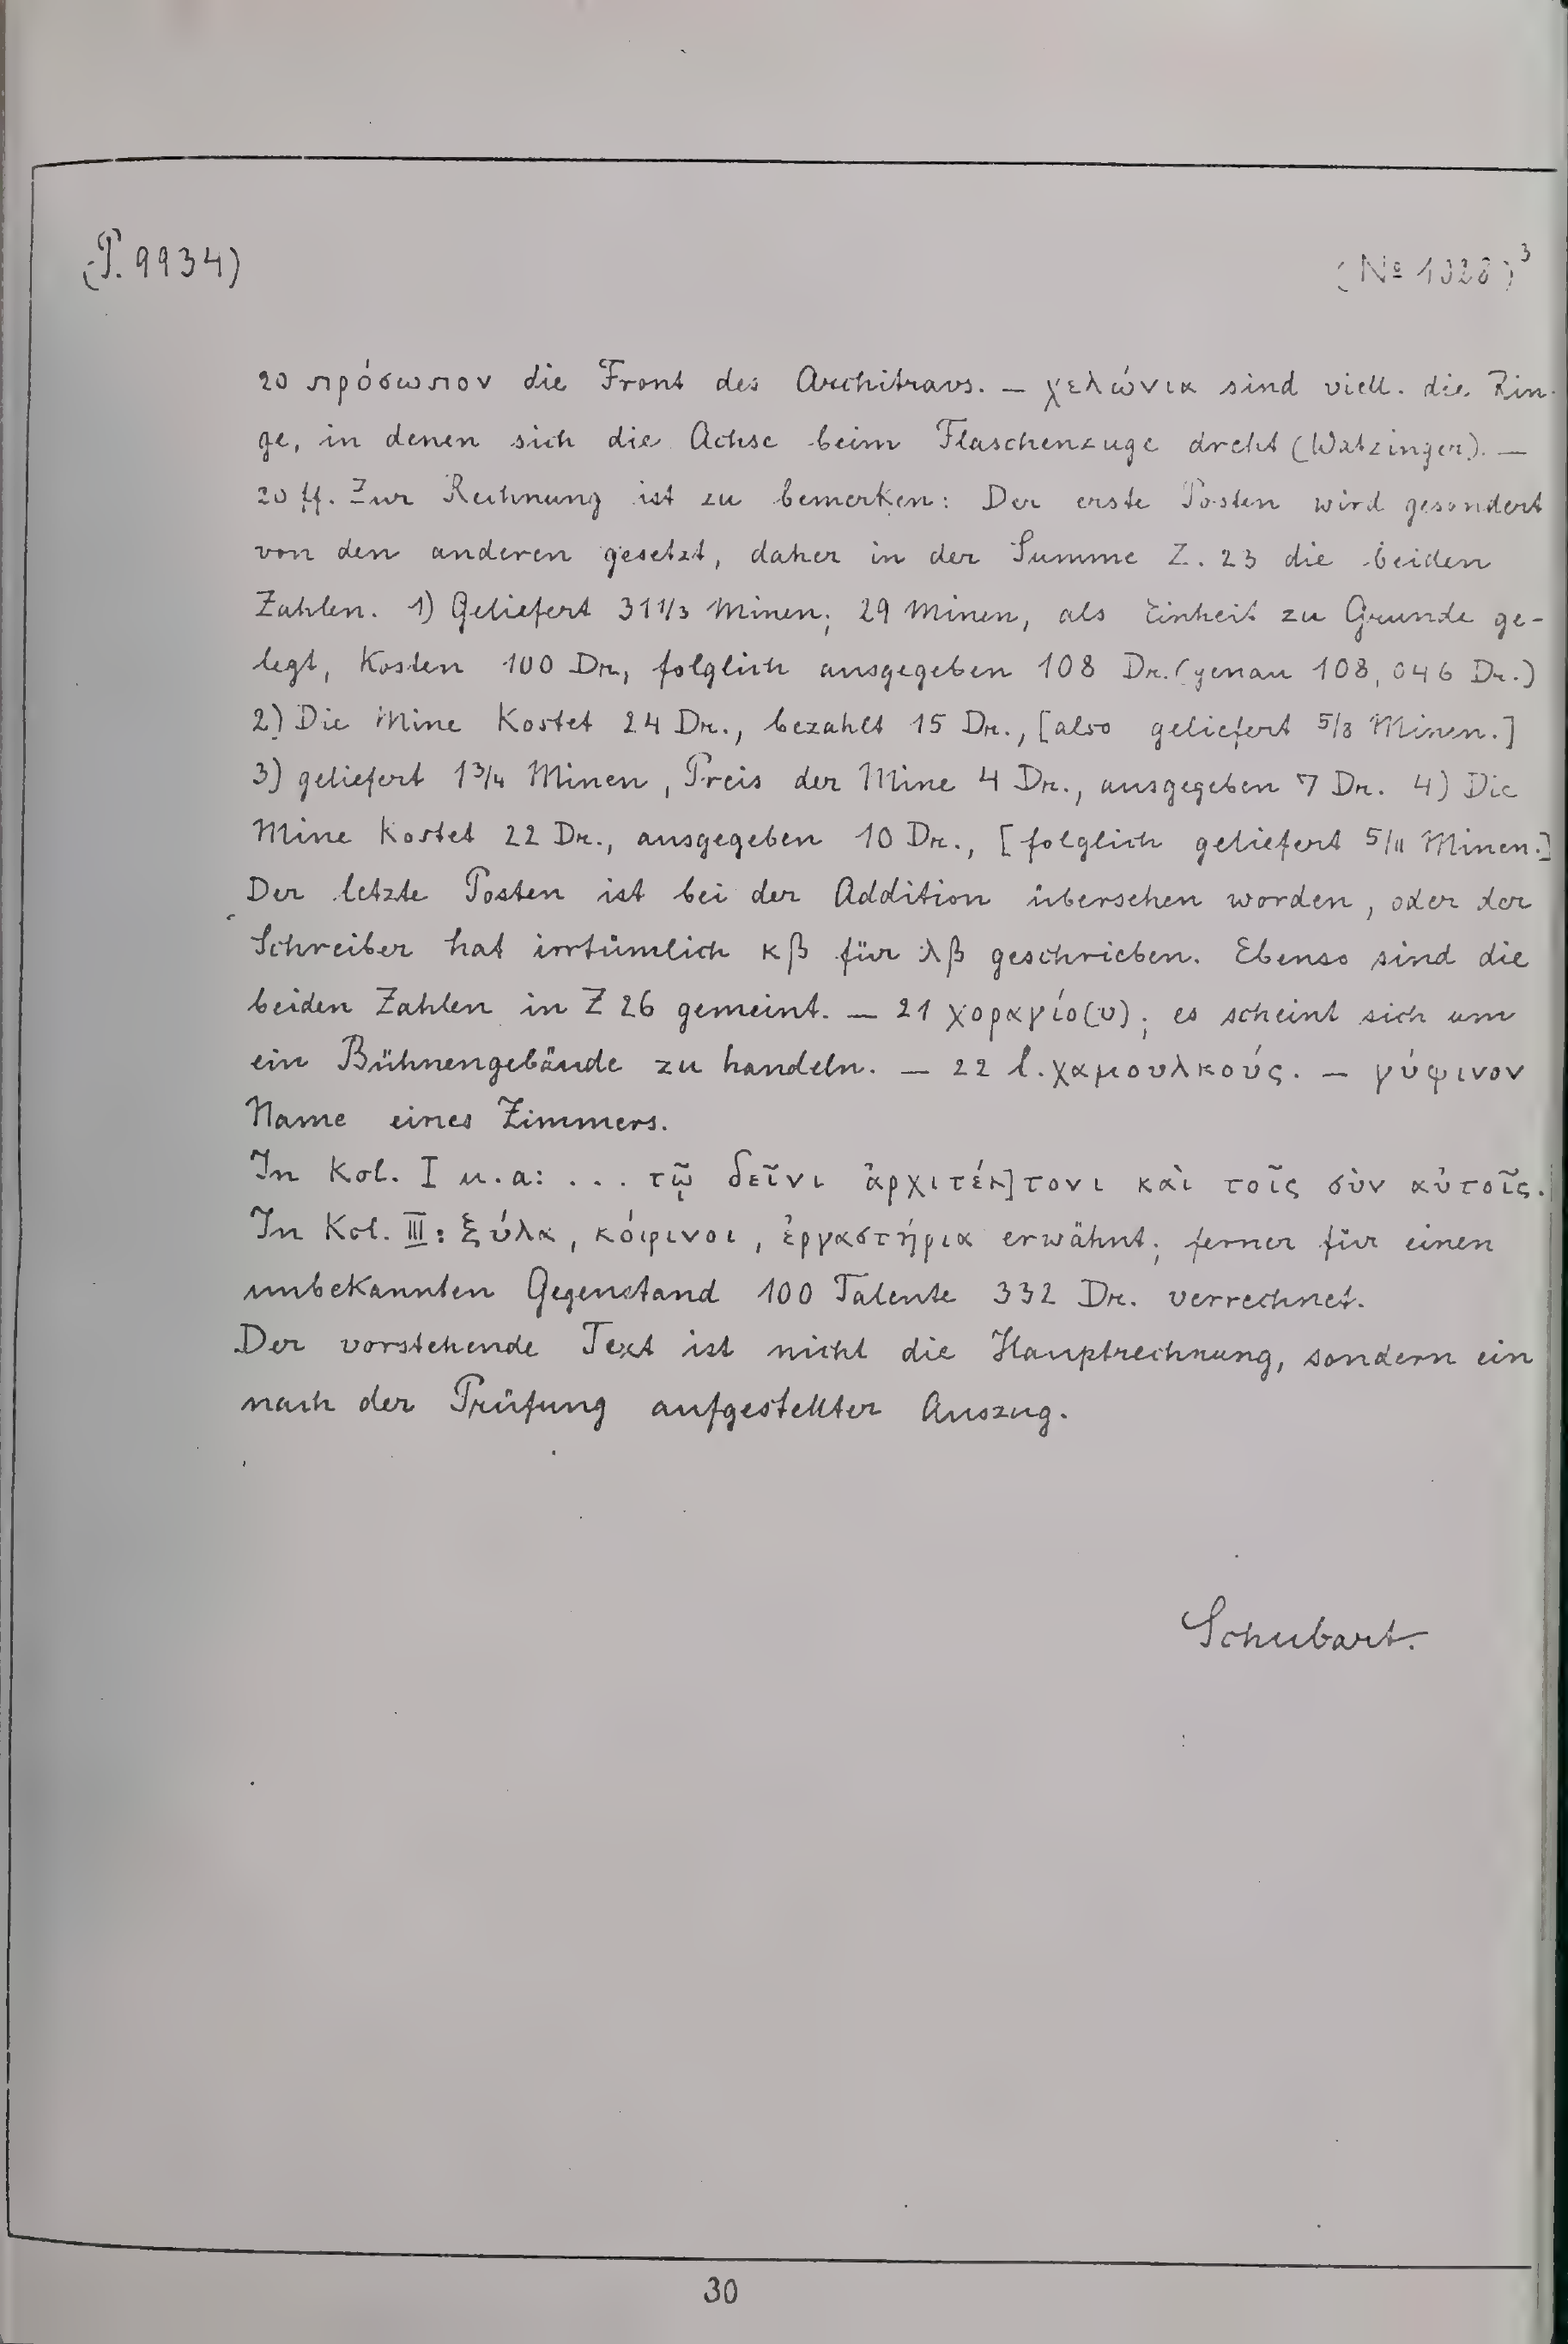 (P. 9934)
(№ 1028)³
20 πρόσωπον die Front des Architravs. — χελώνια sind viell. die Rin-
ge, in denen sich die Achse beim Flaschenzuge dreht (Watzinger). —
20 ff. Zur Rechnung ist zu bemerken: Der erste Posten wird gesondert
von den anderen gesetzt, daher in der Summe Z. 23 die beiden
Zahlen. 1) Geliefert 31 1/3 Minen; 29 Minen, als Einheit zu Grunde ge-
legt, Kosten 100 Dr., folglich ausgegeben 108 Dr. (genau 108,046 Dr.)
2) Die Mine Kostet 24 Dr., bezahlt 15 Dr., [also geliefert 5/8 Minen.]
3) geliefert 1 3/4 Minen, Preis der Mine 4 Dr., ausgegeben 7 Dr. 4) Die
Mine Kostet 22 Dr., ausgegeben 10 Dr., [folglich geliefert 5/11 Minen.]
Der letzte Posten ist bei der Addition übersehen worden, oder der
Schreiber hat irrtümlich κβ für λβ geschrieben. Ebenso sind die
beiden Zahlen in Z 26 gemeint. — 21 χοραγίο(υ); es scheint sich um
ein Bühnengebäude zu handeln. — 22 l. χαμουλκούς. — γύψινον
Name eines Zimmers.
In Kol. I u.a: ... τῷ δεῖνι ἀρχιτέκ]τονι καὶ τοῖς σὺν αὐτοῖς.
In Kol. III: ξύλα, κόφινοι, ἐργαστήρια erwähnt; ferner für einen
unbekannten Gegenstand 100 Talente 332 Dr. verrechnet.
Der vorstehende Text ist nicht die Hauptrechnung, sondern ein
nach der Prüfung aufgestellter Auszug.
Schubart.
30